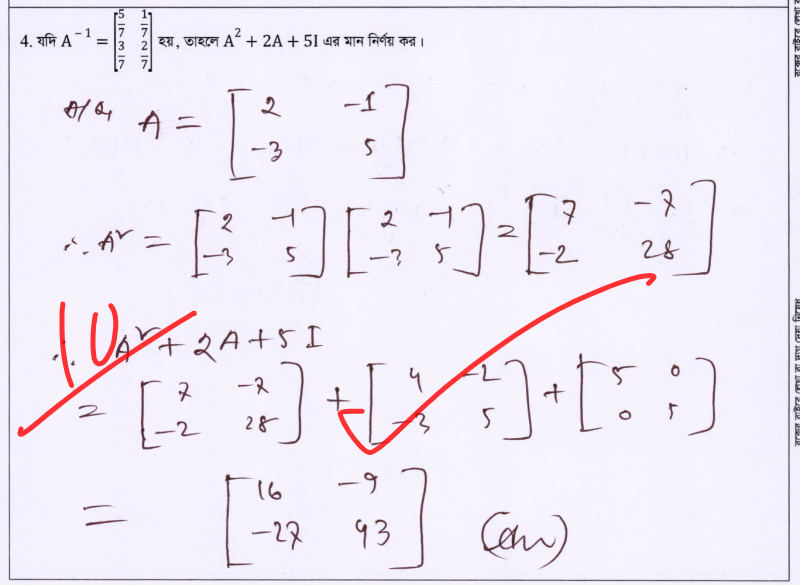 4. যদি A⁻¹ = [5/7 1/7; 3/7 2/7] হয়, তাহলে A² + 2A + 5I এর মান নির্ণয় কর।
A = [2 -1; -3 5]
∴ A² = [2 -1; -3 5] [2 -1; -3 5] = [7 -7; -2 28]
10
∴ A² + 2A + 5I
= [7 -7; -2 28] + [4 -2; -3 5] + [5 0; 0 5]
= [16 -9; -27 43] (Ans)